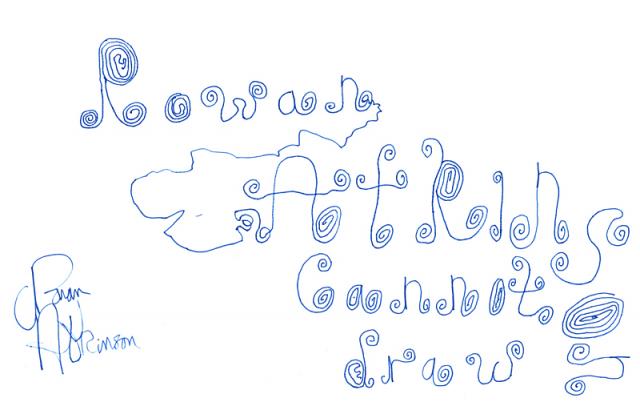 Rowan
Atkinson
Cannot
draw
Rowan
Atkinson